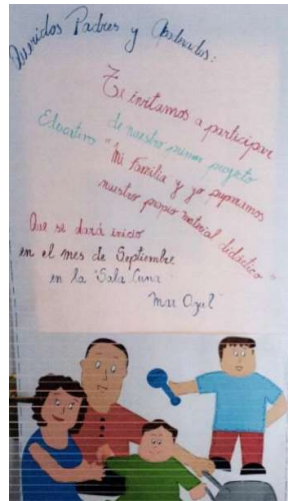 Queridos Padres y Apoderados:
Te invitamos a participar
de nuestro primer proyecto
Educativo "Mi Familia y yo preparamos
nuestro propio material didáctico"
Que se dará inicio
en el mes de Septiembre
en la "Sala Cuna
Mar Azul"